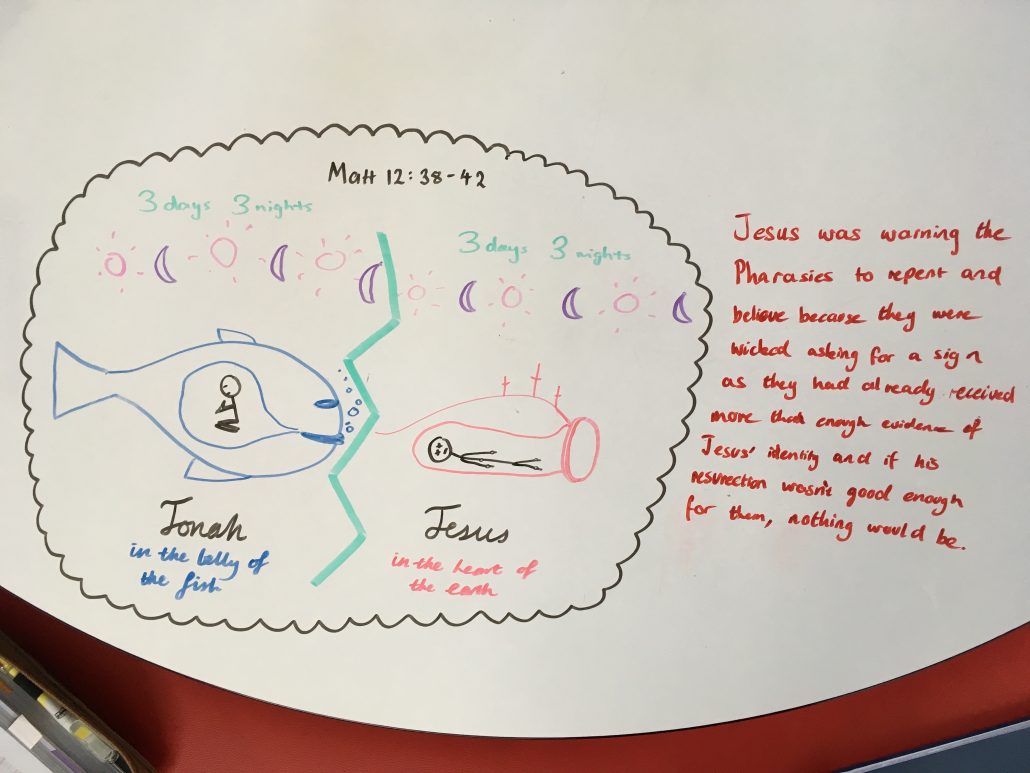 Matt 12:38-42
3 days 3 nights
3 days 3 nights
Jonah
in the belly of
the fish
Jesus
in the heart of
the earth
Jesus was warning the
Pharasies to repent and
believe because they were
wicked asking for a sign
as they had already received
more than enough evidence of
Jesus' identity and if his
resurrection wasn't good enough
for them, nothing would be.